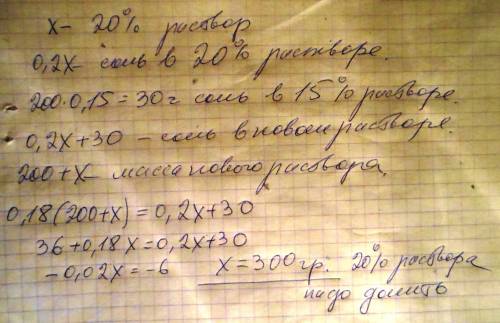 x - 20% раствор
0,2x - соль в 20% растворе.
200·0,15 = 30 г соль в 15% растворе.
0,2x + 30 - соль в новом растворе.
200 + x - масса нового раствора.
0,18(200+x) = 0,2x + 30
36 + 0,18x = 0,2x + 30
-0,02x = -6 x = 300 гр. 20% раствора
надо долить